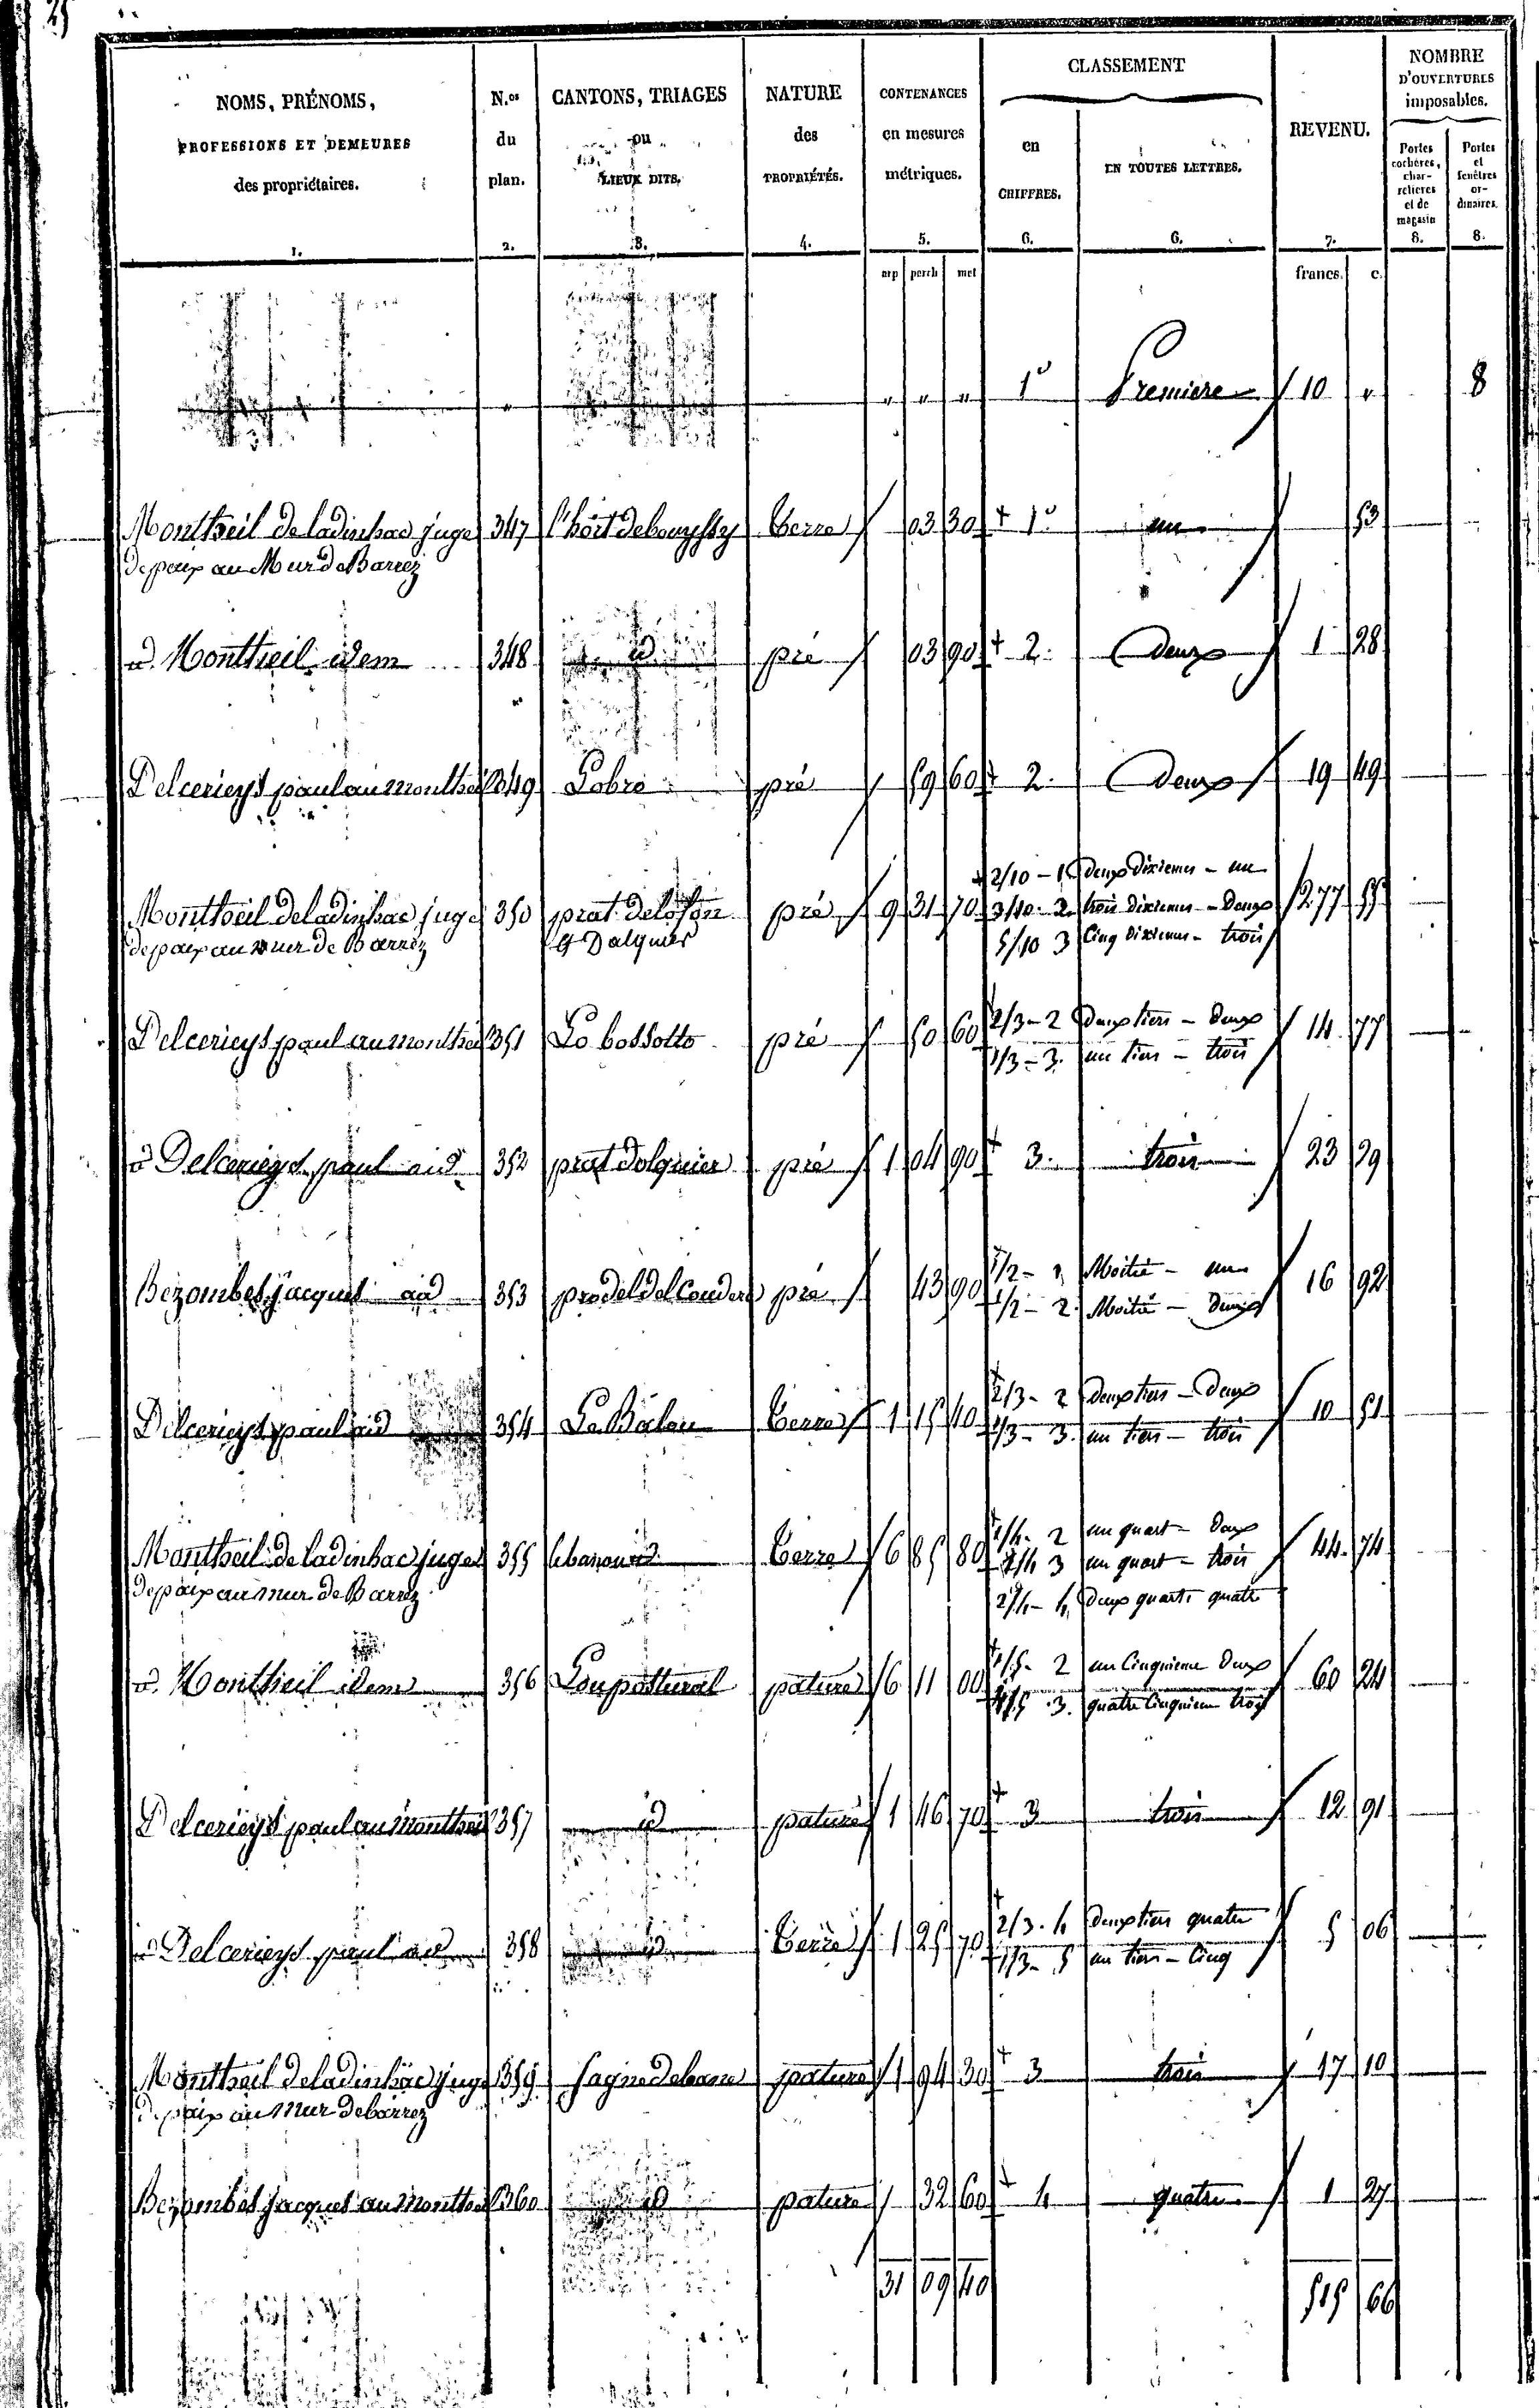 25
NOMS, PRÉNOMS,
PROFESSIONS ET DEMEURES
des propriétaires.
1.
N.os
du
plan.
2.
CANTONS, TRIAGES
ou
LIEUX DITS.
3.
NATURE
des
PROPRIÉTÉS.
4.
CONTENANCES
en mesures
métriques.
5.
CLASSEMENT
en
CHIFFRES.
6.
EN TOUTES LETTRES.
6.
REVENU.
7.
NOMBRE
D'OUVERTURES
imposables.
Portes
cochères,
char-
retières
et de
magasin
8.
Portes
et
fenêtres
or-
dinaires.
8.
arp perch met francs. c.
" " " " 1e Premiere 10 " 8
Montheil de ladinhac juge 347 l'hort debouyssy terre 03 30 1e un 53
de paix au Mur de Barrez
id. Montheil idem 348 id pré 03 90 2. Deux 1 28
Delcerieys paul au montheil 349 Lobro pré 59 60 2. Deux 19 49
Montheil de ladinhac juge 350 prat delofon pré 9 31 70 2/10 - 1 deux Dixiemes - un 277 55
de paix au mur de Barrez & Dalquier 3/10 - 2 trois dixiemes - Deux
5/10 3 Cinq dixiemes - trois
Delcerieys paul au montheil 351 Lo bossotto pré 50 60 2/3 - 2 Deux tiers - deux 14 77
1/3 - 3. un tiers - trois
id Delcerieys paul aid 352 prat dolquier pré 1 04 90 3. trois 23 29
Bezombes jacques aid 353 pradel del Couderc pré 43 90 1/2 - 1 Moitié - un 16 92
1/2 - 2. Moitié - Deux
Delcerieys paul aid 354 La Balou terre 1 15 40 2/3 - 2 Deux tiers - Deux 10 51
1/3 - 3. un tiers - trois
Montheil de ladinhac juge 355 terre 6 85 80 1/4 - 2 un quart - Deux 44 74
de paix au mur de Barrez 1/4 3 un quart - trois
2/4 - 4 deux quarts quatre
id. Montheil idem 356 Loupattural pature 6 11 00 1/5 - 2 un Cinquieme Deux 60 24
4/5 3. quatre Cinquieme trois
Delcerieys paul au montheil 357 id pature 1 46 70 3 trois 12 91
id Delcerieys paul aid 358 id terre 1 25 70 2/3 - 4 deux tiers quatre 5 06
1/3 - 5 un tiers - Cinq
Montheil de ladinhac juge 359 pature 1 94 30 3 trois 17 10
de paix au Mur de barrez
Bezombes jacques au montheil 360 id pature 32 60 4 quatre 1 27
31 09 40 515 66